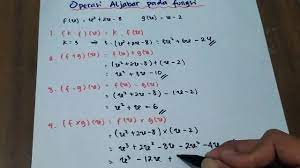 Operasi Aljabar pada fungsi
f(x) = x² + 2x - 8   g(x) = x - 2
1. (k · f)(x) = k · f(x)
k = 3 → 3 · (x² + 2x - 8) = 3x² + 6x - 24
2. (f + g)(x) = f(x) + g(x)
= (x² + 2x - 8) + (x - 2)
= x² + 3x - 10
3. (f - g)(x) = f(x) - g(x)
= (x² + 2x - 8) - (x - 2)
= x² + x - 6
4. (f × g)(x) = f(x) × g(x)
= (x² + 2x - 8) × (x - 2)
= x³ + 2x² - 8x - 2x² - 4x
= x³ - 12x +